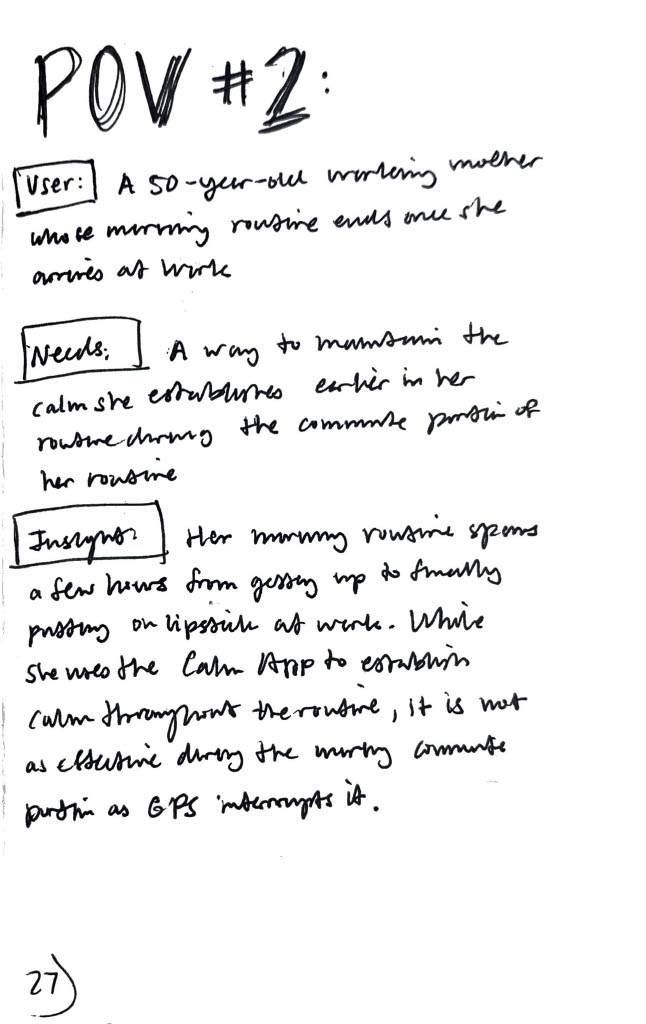 POV #2:
User: A 50-year-old working mother
whose morning routine ends once she
arrives at work
Needs: A way to maintain the
calm she establishes earlier in her
routine during the commute portion of
her routine
Insight: Her morning routine spans
a few hours from getting up to finally
putting on lipstick at work. While
she uses the Calm App to establish
calm throughout the routine, it is not
as effective during the morning commute
portion as GPS interrupts it.
27